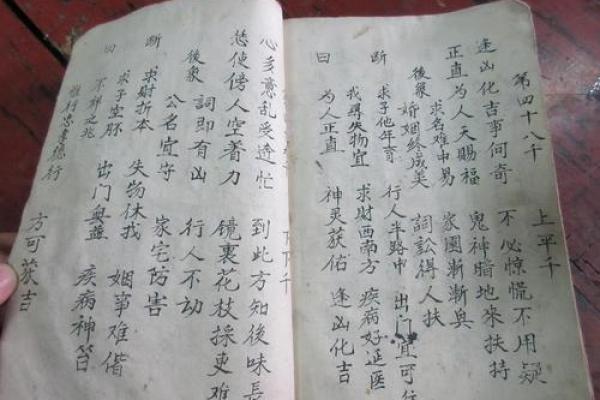 第四十八千 上平千
逢凶化吉事何奇 不必惊慌不用疑
正直为人天賜福 鬼神暗地來扶持
求名难中易 家園漸漸奥
後象 婚姻終成美 詞訟得人扶
断 求子他年育 行人半路中 出门宜可行
我尋失物宜 求財西南方 疾病好延醫
曰 为人正直 神灵获佑 逢凶化吉
下下千
心多意乱受透忙 到此方知後味長
恐使傍人空着力 镜裏花枝採更难
後象 詞即有凶 行人不动
公名宜守 家宅防害
断 求財折本 失物休找 姻事难偕
求子空胚 出门無益 疾病神笞
曰 不祥之兆
惟行忠孝德行 方可获吉